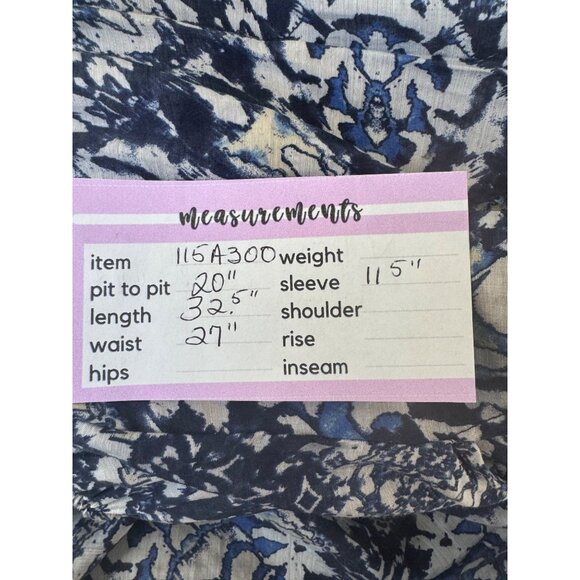 measurements
item 115A300 weight
pit to pit 20" sleeve 11 5"
length 32.5" shoulder
waist 27" rise
hips inseam